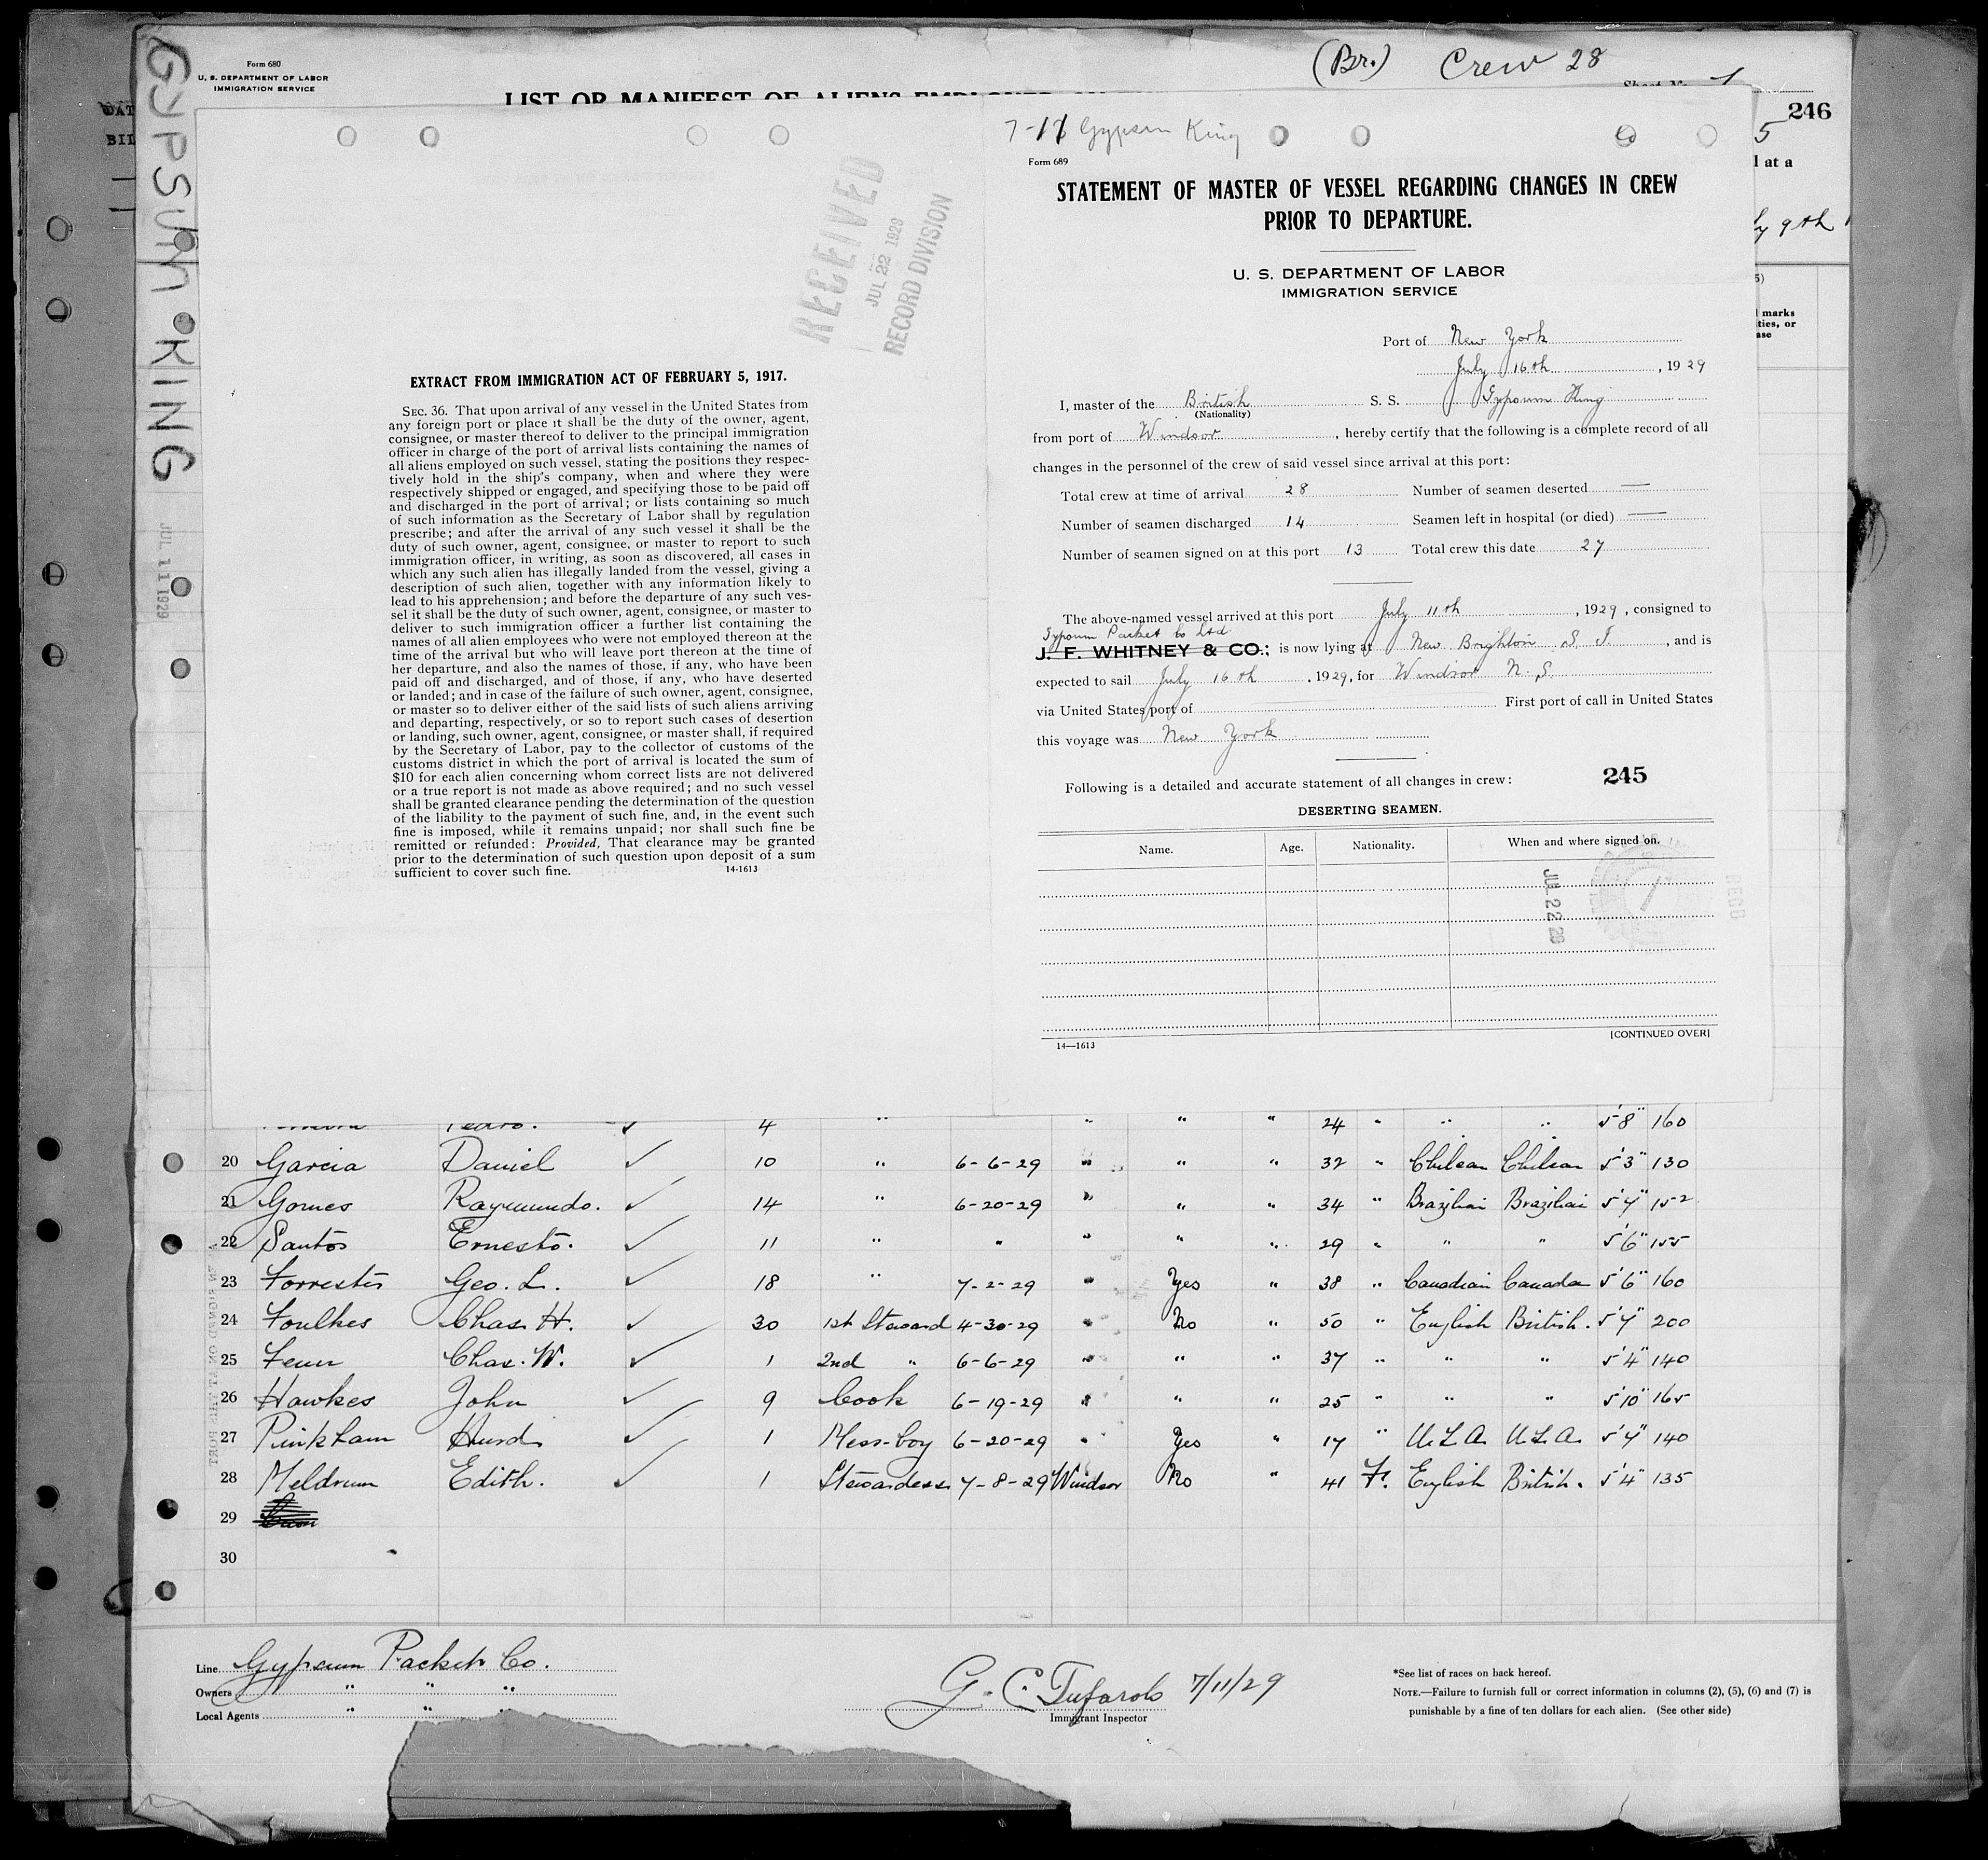 GYPSUM KING
JUL 11 1929
Form 680
U. S. DEPARTMENT OF LABOR
IMMIGRATION SERVICE
(Br.) Crew 28
LIST OR MANIFEST OF ALIENS EMPLOYED
246
5
l at a
ly 9th
marks
ties, or
ase
RECEIVED
JUL 22 1929
RECORD DIVISION
EXTRACT FROM IMMIGRATION ACT OF FEBRUARY 5, 1917.
SEC. 36. That upon arrival of any vessel in the United States from
any foreign port or place it shall be the duty of the owner, agent,
consignee, or master thereof to deliver to the principal immigration
officer in charge of the port of arrival lists containing the names of
all aliens employed on such vessel, stating the positions they respec-
tively hold in the ship's company, when and where they were
respectively shipped or engaged, and specifying those to be paid off
and discharged in the port of arrival; or lists containing so much
of such information as the Secretary of Labor shall by regulation
prescribe; and after the arrival of any such vessel it shall be the
duty of such owner, agent, consignee, or master to report to such
immigration officer, in writing, as soon as discovered, all cases in
which any such alien has illegally landed from the vessel, giving a
description of such alien, together with any information likely to
lead to his apprehension; and before the departure of any such ves-
sel it shall be the duty of such owner, agent, consignee, or master to
deliver to such immigration officer a further list containing the
names of all alien employees who were not employed thereon at the
time of the arrival but who will leave port thereon at the time of
her departure, and also the names of those, if any, who have been
paid off and discharged, and of those, if any, who have deserted
or landed; and in case of the failure of such owner, agent, consignee,
or master so to deliver either of the said lists of such aliens arriving
and departing, respectively, or so to report such cases of desertion
or landing, such owner, agent, consignee, or master shall, if required
by the Secretary of Labor, pay to the collector of customs of the
customs district in which the port of arrival is located the sum of
$10 for each alien concerning whom correct lists are not delivered
or a true report is not made as above required; and no such vessel
shall be granted clearance pending the determination of the question
of the liability to the payment of such fine, and, in the event such
fine is imposed, while it remains unpaid; nor shall such fine be
remitted or refunded: Provided, That clearance may be granted
prior to the determination of such question upon deposit of a sum
sufficient to cover such fine. 14-1613
7-17 Gypsum King
Form 689
STATEMENT OF MASTER OF VESSEL REGARDING CHANGES IN CREW
PRIOR TO DEPARTURE.
U. S. DEPARTMENT OF LABOR
IMMIGRATION SERVICE
Port of New York
July 16th, 1929
I, master of the British S. S. Gypsum King
(Nationality)
from port of Windsor, hereby certify that the following is a complete record of all
changes in the personnel of the crew of said vessel since arrival at this port:
Total crew at time of arrival 28 Number of seamen deserted —
Number of seamen discharged 14 Seamen left in hospital (or died) —
Number of seamen signed on at this port 13 Total crew this date 27
The above-named vessel arrived at this port July 11th, 1929, consigned to
Gypsum Packet Co Ltd
J. F. WHITNEY & CO.; is now lying at New Brighton S. I., and is
expected to sail July 16th, 1929, for Windsor N. S.
via United States port of First port of call in United States
this voyage was New York
Following is a detailed and accurate statement of all changes in crew: 245
DESERTING SEAMEN.
Name. Age. Nationality. When and where signed on.
JUL 22 29
RECD
14—1613 [CONTINUED OVER]
Pedro. 4 " " " " 24 " " " 5'8" 160
20 Garcia Daniel ✓ 10 " 6-6-29 " " " 32 " Chilean Chilean 5'3" 130
21 Gomes Raymundo. ✓ 14 " 6-20-29 " " " 34 " Brazilian Brazilian 5'7" 152
22 Santos Ernesto. ✓ 11 " " " " " 29 " " " 5'6" 155
23 Forrester Geo. L. ✓ 18 " 7-2-29 " Yes " 38 " Canadian Canada 5'6" 160
24 Foulkes Chas. H. ✓ 30 1st Steward 4-30-29 " No " 50 " English British. 5'7" 200
25 Fenn Chas. W. ✓ 1 2nd " 6-6-29 " " " 37 " " " 5'4" 140
26 Hawkes John ✓ 9 Cook 6-19-29 " " " 25 " " " 5'10" 165
27 Pinkham Hurd ✓ 1 Mess-boy 6-20-29 " Yes " 17 " U.S.A. U.S.A. 5'7" 140
28 Meldrum Edith. ✓ 1 Stewardess 7-8-29 Windsor No " 41 F. English British. 5'4" 135
29
30
Line Gypsum Packet Co.
Owners " " "
Local Agents " " "
G. C. Tufarolo 7/11/29
Immigrant Inspector
*See list of races on back hereof.
NOTE.—Failure to furnish full or correct information in columns (2), (5), (6) and (7) is
punishable by a fine of ten dollars for each alien. (See other side)